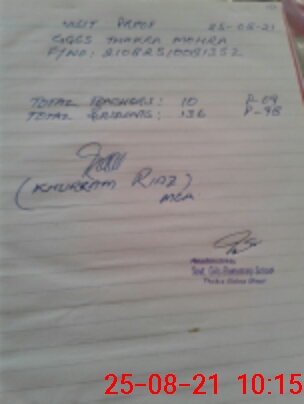 VISIT PROOF 25-08-21
GGES THAKRA MOHRA
TOTAL TEACHERS: 10 P-09
TOTAL STUDENTS: 136 P-98
(KHURRAM RIAZ)
MEA
Govt. Girls Elementary School
Thakra Mohra
25-08-21 10:15